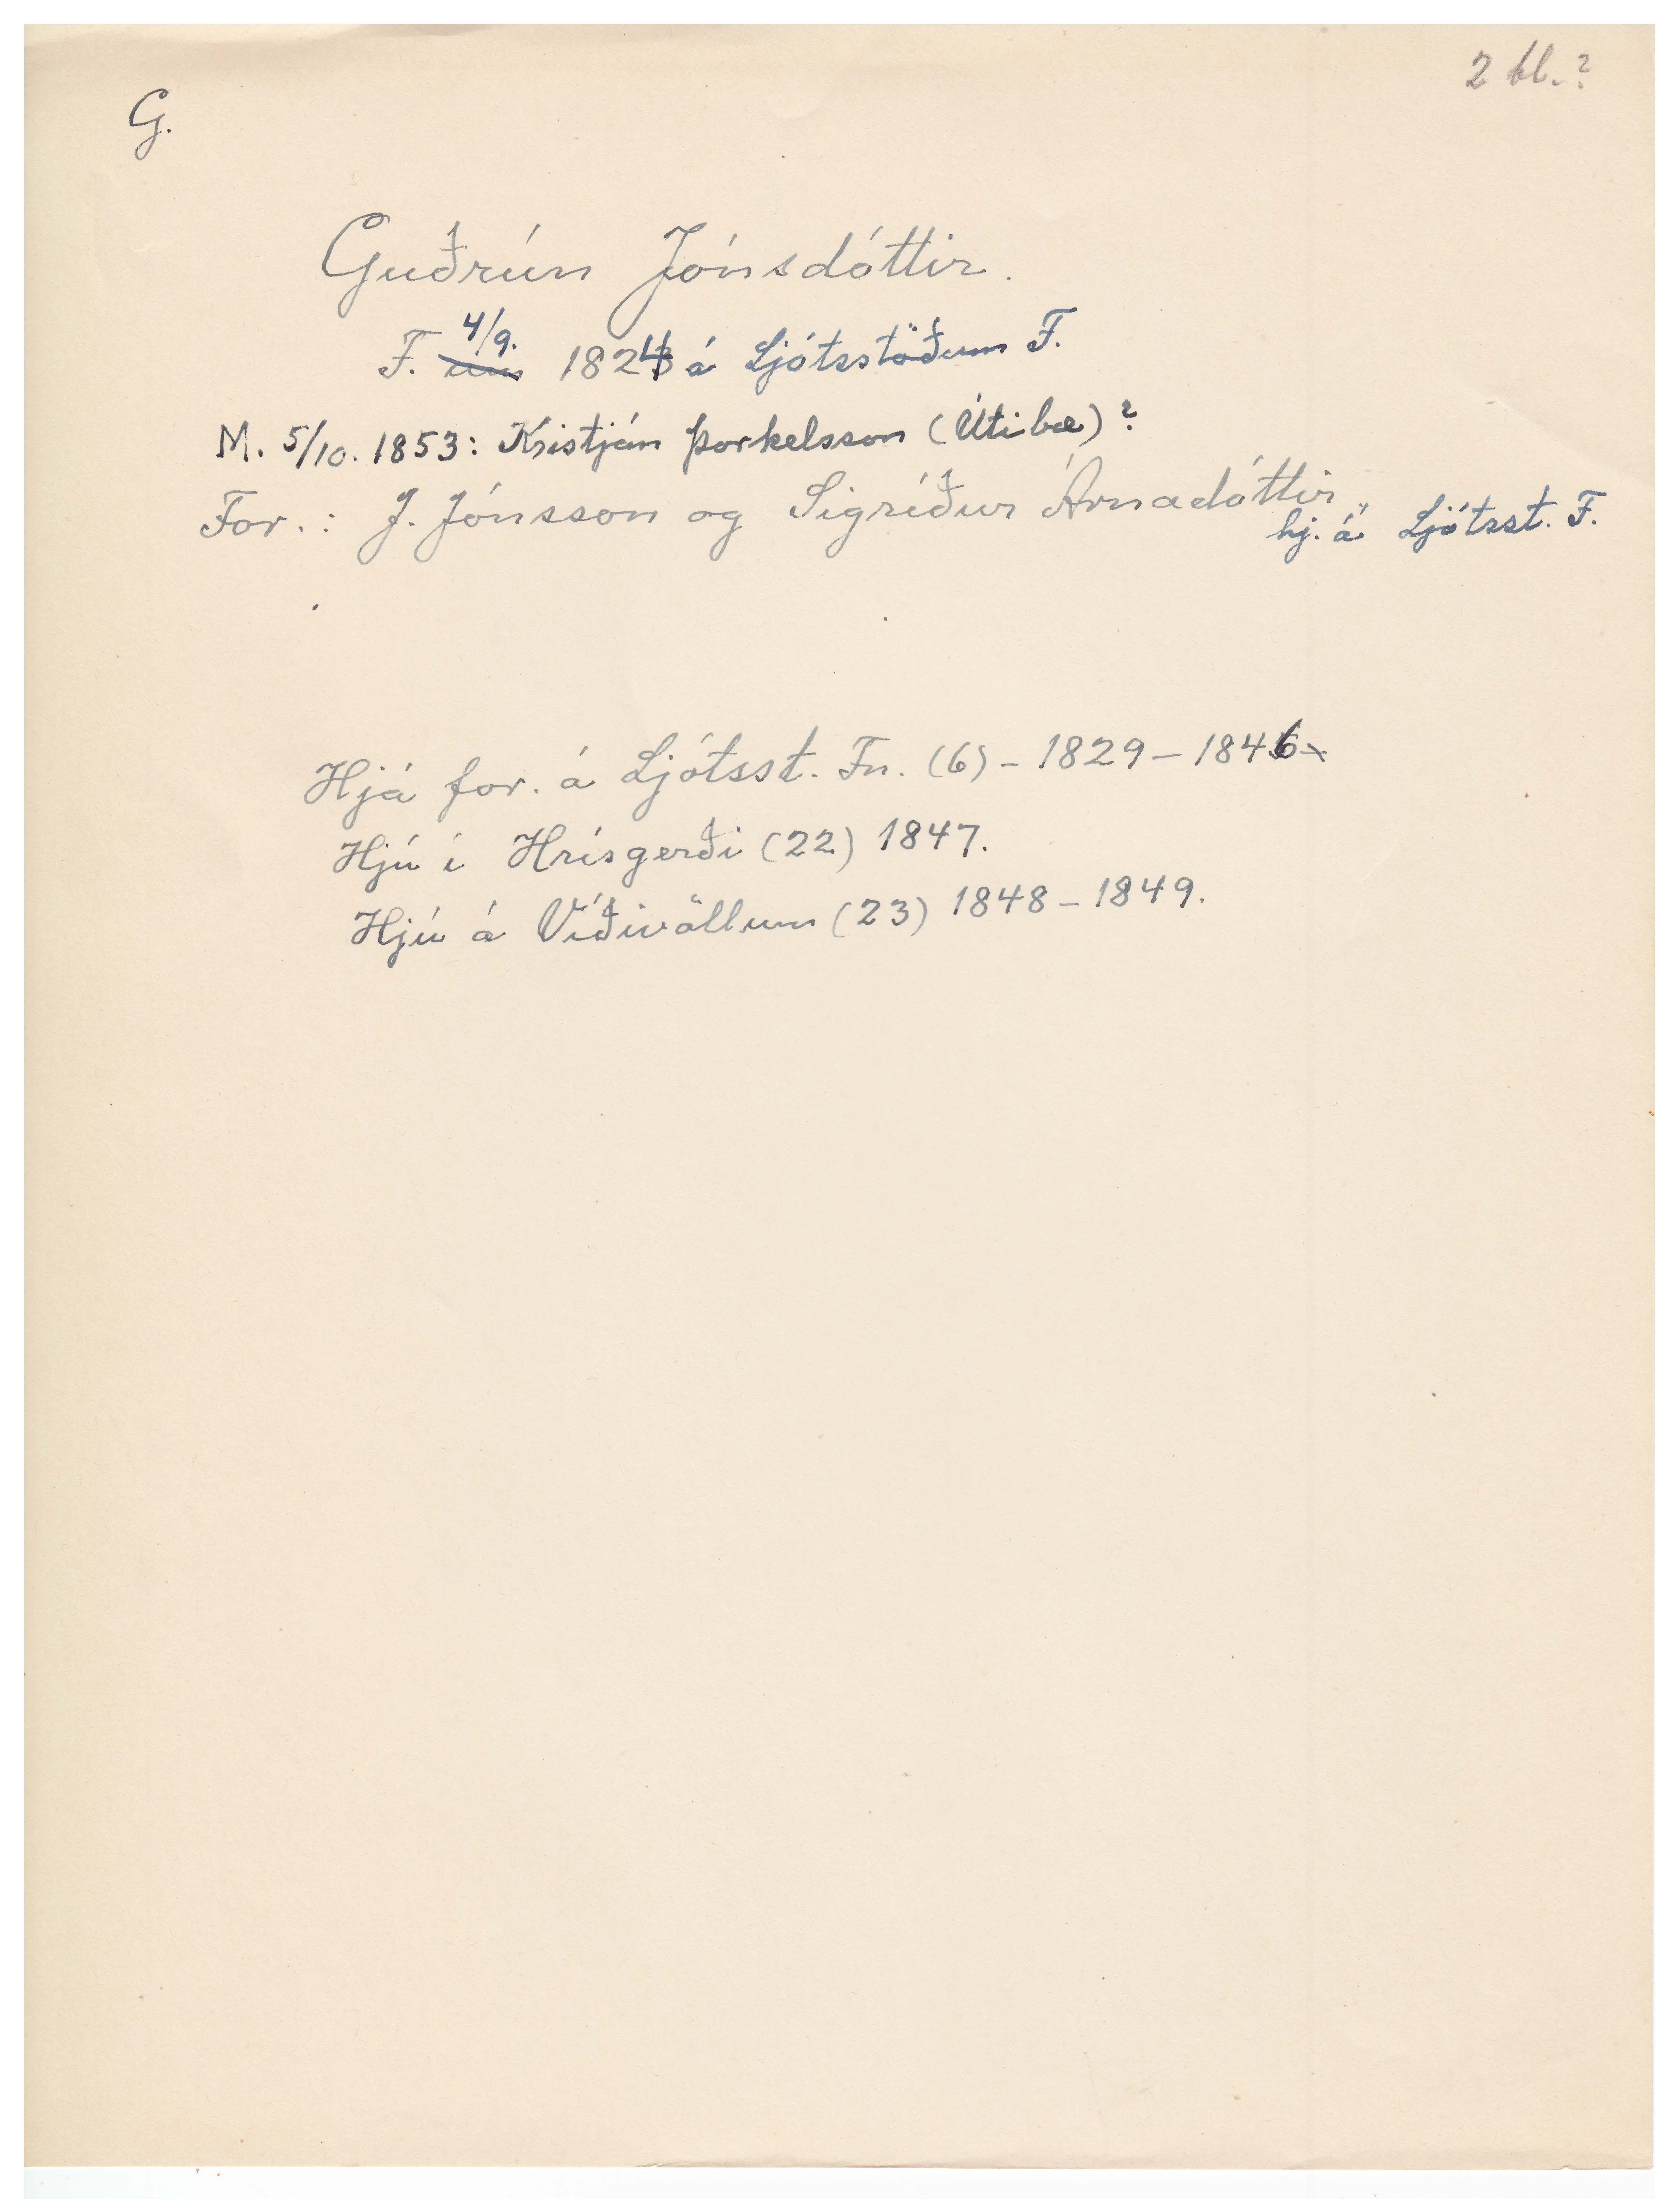 2 bl. ?
G.
Guðrún Jónsdóttir.
F. 4/9. 1824 á Ljótsstöðum F.
M. 5/10. 1853: Kristján Þorkelsson (Útibæ) ?
For.: J. Jónsson og Sigríður Árnadóttir,
hj. á Ljótsst. F.
Hjá for. á Ljótsst. Fn. (6) - 1829 - 1846-
Hjú í Hrísgerði (22) 1847.
Hjú á Víðivöllum (23) 1848 - 1849.